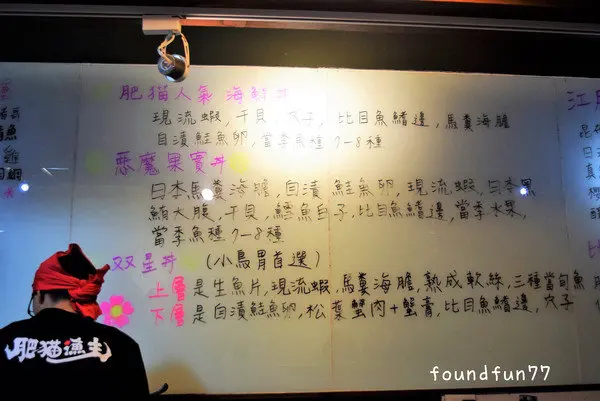 肥猫人氣 海鮮丼
現流蝦,干貝,穴子,比目魚鰭邊,馬糞海膽
自漬鮭魚卵,當季魚種7-8種
惡魔果實丼
日本馬糞海膽,自漬鮭魚卵,現流蝦,日本黑
鮪大腹,干貝,鱈魚白子,比目魚鰭邊,當季水果,
當季魚種7-8種
双星丼 (小鳥胃首選)
上層是生魚片,現流蝦,馬糞海膽,熟成軟絲,三種當旬魚
下層是自漬鮭魚卵,松葉蟹肉+蟹膏,比目魚鰭邊,穴子
肥猫漁夫
foundfun77